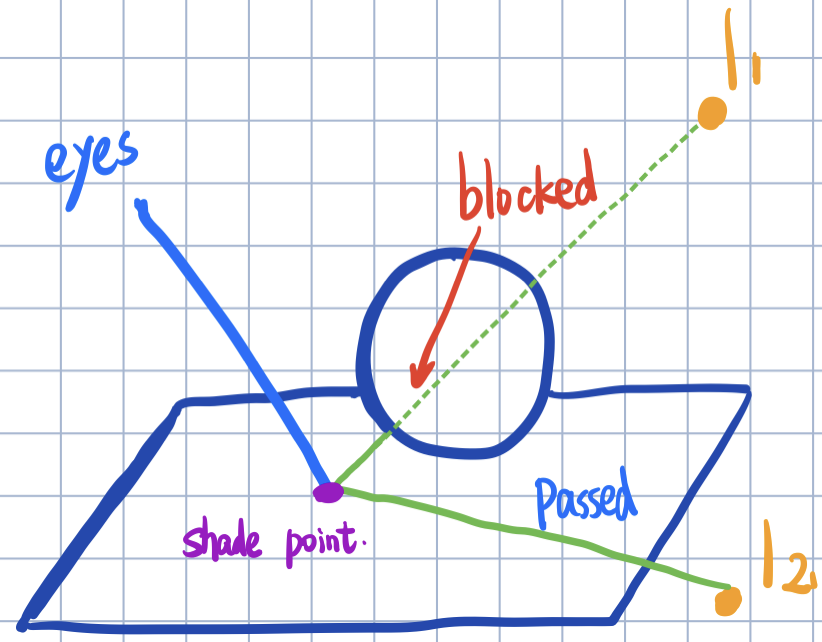 l1
eyes
blocked
Passed
shade point.
l2